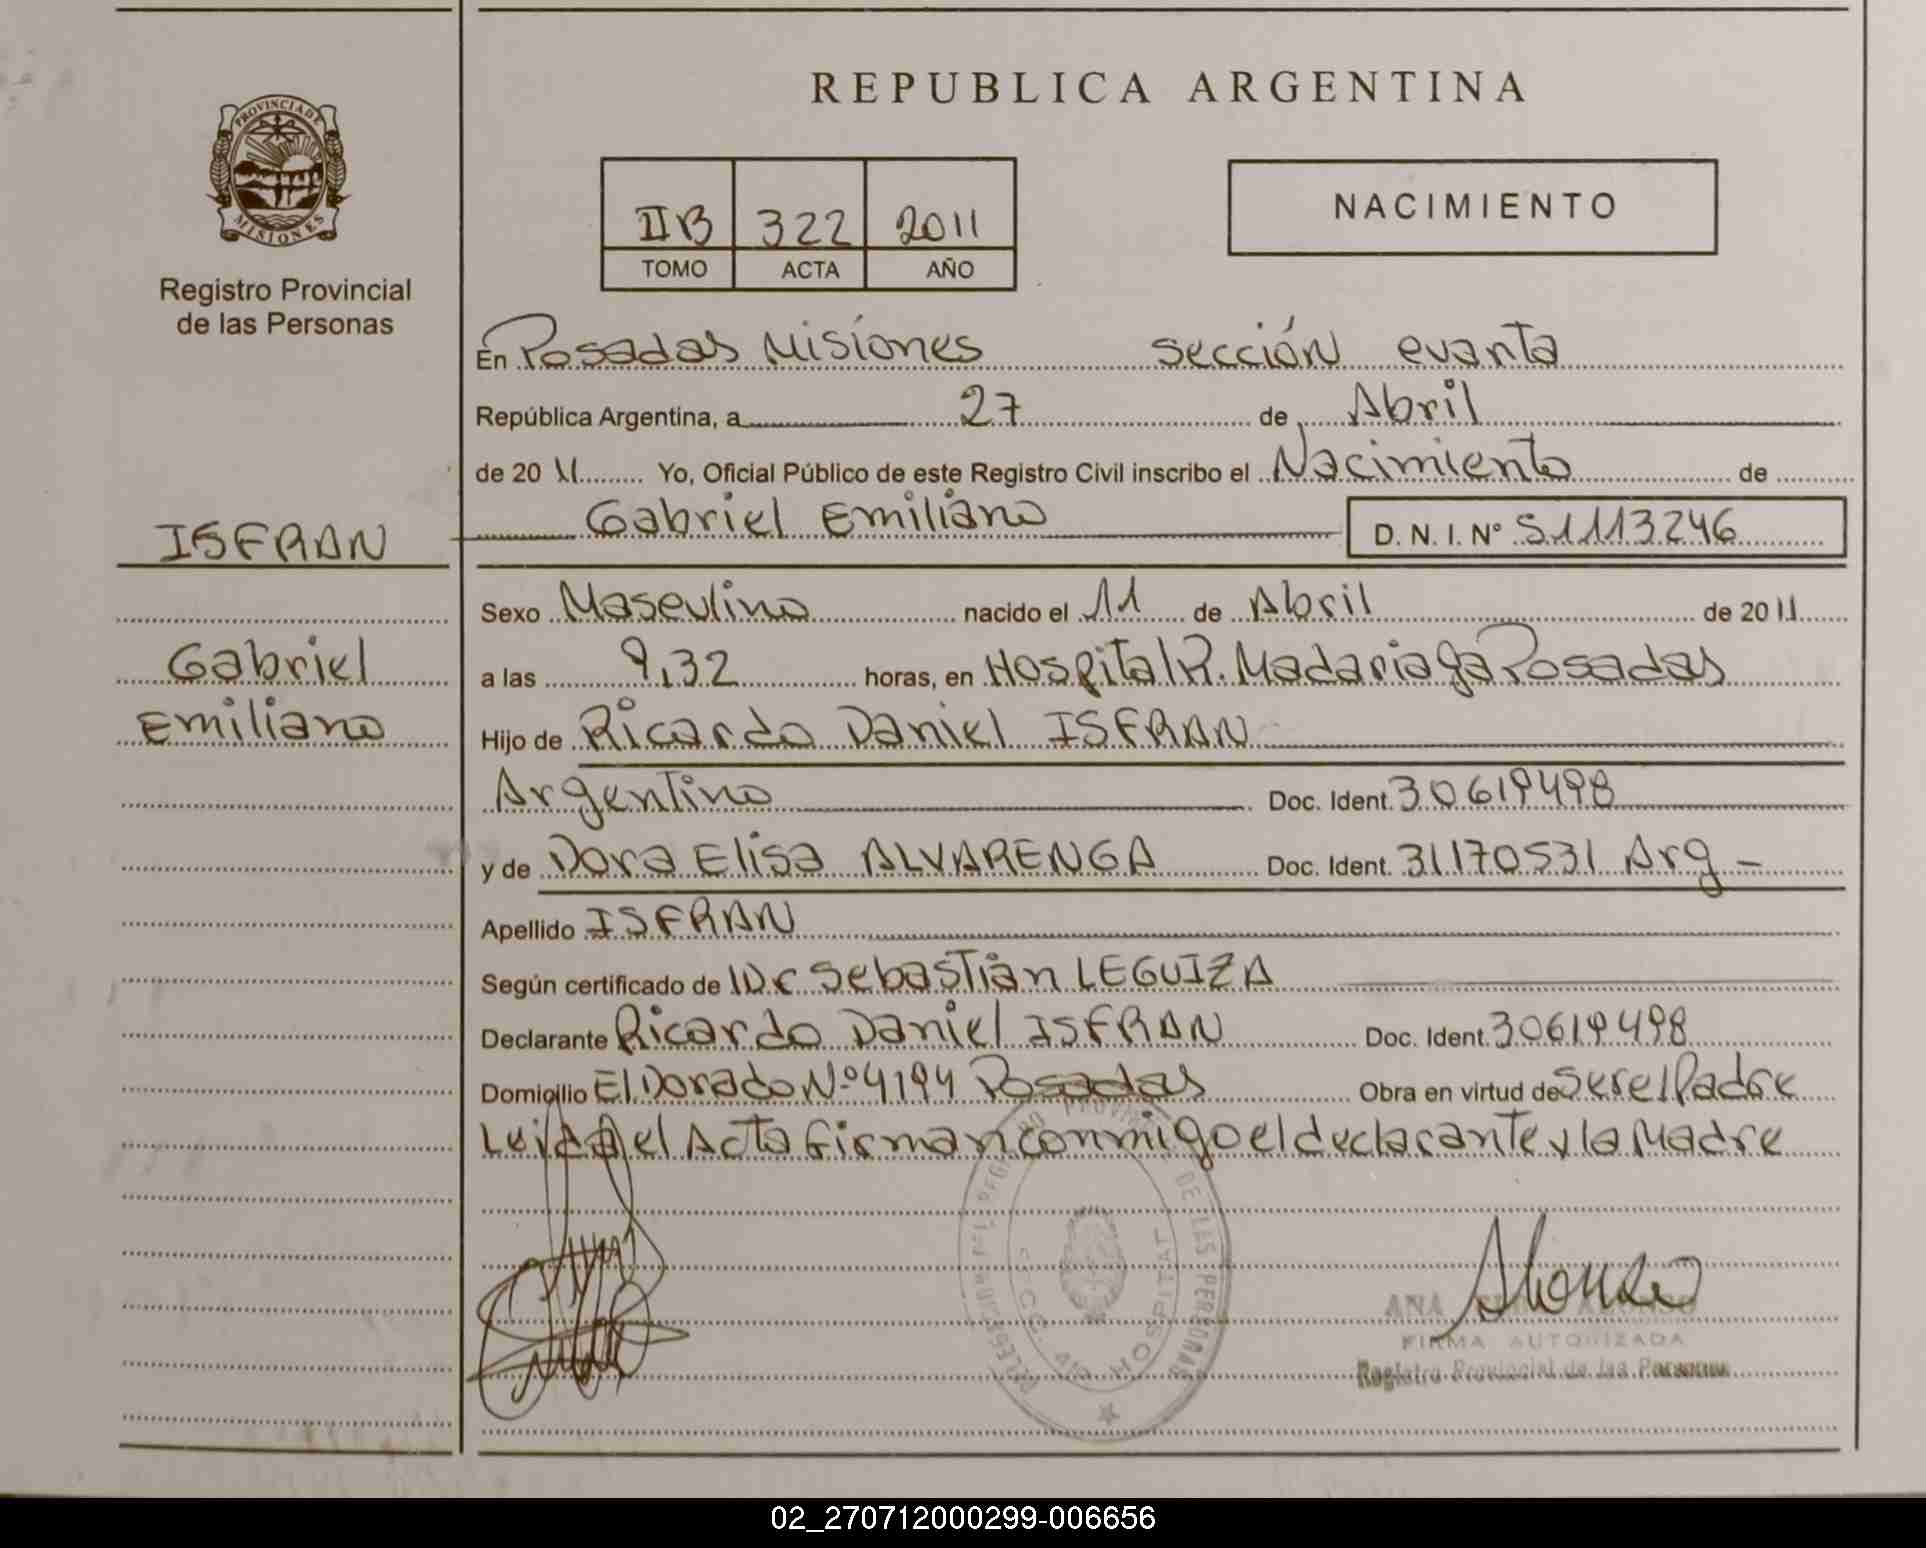 REPUBLICA ARGENTINA
PROVINCIA DE
MISIONES
Registro Provincial
de las Personas
IIB 322 2011
TOMO ACTA AÑO
NACIMIENTO
En Posadas Misiones sección cuarta
República Argentina, a 27 de Abril
de 20 11 Yo, Oficial Público de este Registro Civil inscribo el Nacimiento de
Gabriel Emiliano D. N. I. Nº 51113246
ISFRAN
Gabriel
Emiliano
Sexo Masculino nacido el 11 de Abril de 2011
a las 9,32 horas, en Hospital R. Madariaga Posadas
Hijo de Ricardo Daniel ISFRAN
Argentino Doc. Ident. 30619498
y de Dora Elisa ALVARENGA Doc. Ident. 31170531 Arg -
Apellido ISFRAN
Según certificado de Dr Sebastián LEGUIZA
Declarante Ricardo Daniel ISFRAN Doc. Ident. 30619498
Domicilio El Dorado Nº 4194 Posadas Obra en virtud de Ser el Padre
Leida el Acta firman conmigo el declarante y la Madre
DE LAS PERSONAS
HOSPITAL
Alonso
ANA
FIRMA AUTORIZADA
Registro Provincial de las Personas
02_270712000299-006656